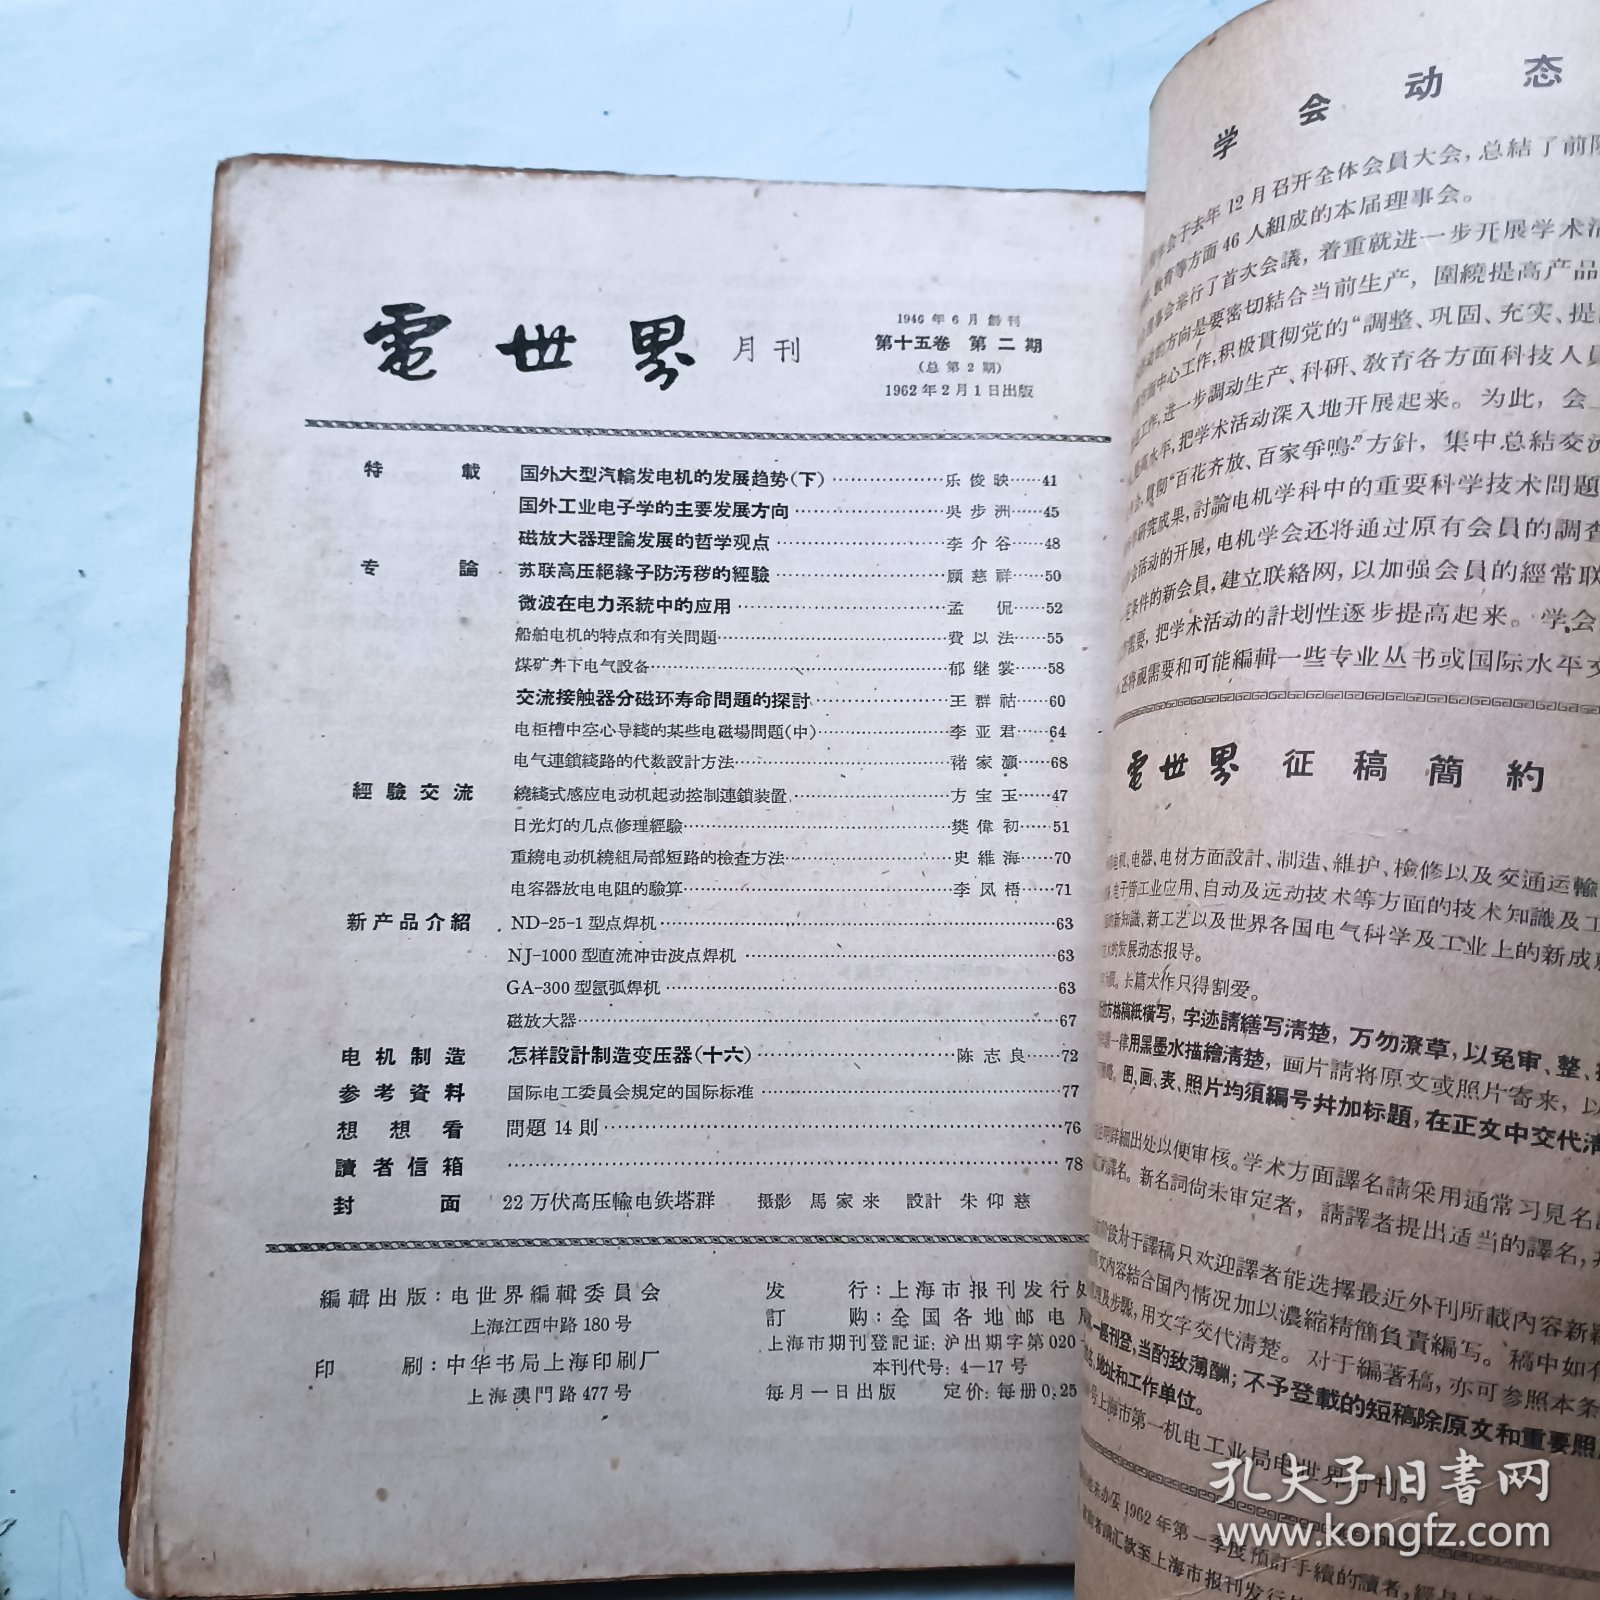 電世界 月刊
1946年6月創刊
第十五卷 第二期
(总第2期)
1962年2月1日出版
特載 国外大型汽輪发电机的发展趋势(下)……乐俊映……41
国外工业电子学的主要发展方向……吳步洲……45
磁放大器理論发展的哲学观点……李介谷……48
专論 苏联高压絕緣子防污秽的經驗……顾慈祥……50
微波在电力系統中的应用……孟侃……52
船舶电机的特点和有关問題……費以法……55
煤矿井下电气設备……郁继裳……58
交流接触器分磁环寿命問題的探討……王群祜……60
电柜槽中空心导綫的某些电磁場問題(中)……李亚君……64
电气連鎖綫路的代数設計方法……褚家灝……68
經驗交流 繞綫式感应电动机起动控制連鎖装置……方宝玉……47
日光灯的几点修理經驗……樊偉初……51
重繞电动机繞組局部短路的檢查方法……史維海……70
电容器放电电阻的驗算……李凤梧……71
新产品介紹 ND-25-1型点焊机……63
NJ-1000型直流冲击波点焊机……63
GA-300型氩弧焊机……63
磁放大器……67
电机制造 怎样設計制造变压器(十六)……陈志良……72
参考資料 国际电工委員会規定的国际标准……77
想想看 問題14則……76
讀者信箱……78
封面 22万伏高压輸电鉄塔群 摄影 馬家来 設計 朱仰慈
編輯出版:电世界編輯委員会
上海江西中路180号
印刷:中华书局上海印刷厂
上海澳門路477号
发行:上海市报刊发行
訂购:全国各地邮电
上海市期刊登記证:沪出期字第020
本刊代号:4—17号
每月一日出版 定价:每册0.25
学会动态
会于去年12月召开全体会員大会,总結了前
教育等方面46人組成的本届理事会。
会举行了首次会議,着重就进一步开展学术活
的方向是要密切結合当前生产,圍繞提高产品
中心工作,积极貫彻党的“調整、巩固、充实、提
工作,进一步調动生产、科研、教育各方面科技人員
高水平,把学术活动深入地开展起来。为此,会
会,貫彻“百花齐放、百家爭鳴”方針,集中总結交流
研究成果,討論电机学科中的重要科学技术問題
会活动的开展,电机学会还将通过原有会員的調查
条件的新会員,建立联絡网,以加强会員的經常联
需要,把学术活动的計划性逐步提高起来。学会
还将視需要和可能編輯一些专业丛书或国际水平
電世界 征稿簡約
电机、电器、电材方面設計、制造、維护、檢修以及交通运輸
电子管工业应用、自动及远动技术等方面的技术知識及工
新知識、新工艺以及世界各国电气科学及工业上的新成
的发展动态报导。
限,长篇大作只得割爱。
方格稿紙橫写,字迹請繕写清楚,万勿潦草,以免审、整、
一律用黑墨水描繪清楚,画片請将原文或照片寄来,以
图、画、表、照片均須編号并加标題,在正文中交代清
明詳細出处以便审核。学术方面譯名請采用通常习見名
譯名。新名詞尙未审定者,請譯者提出适当的譯名,
段对于譯稿只欢迎譯者能选擇最近外刊所載內容新
文內容結合国內情况加以濃縮精簡負責編写。稿中如有
及步驟,用文字交代清楚。对于編著稿,亦可参照本条
一經刊登,当酌致薄酬;不予登載的短稿除原文和重要照
地址和工作单位。
号上海市第一机电工业局电世界月刊。
未办妥1962年第一季度預訂手續的讀者,
請汇款至上海市报刊发行
孔夫子旧書网
www.kongfz.com